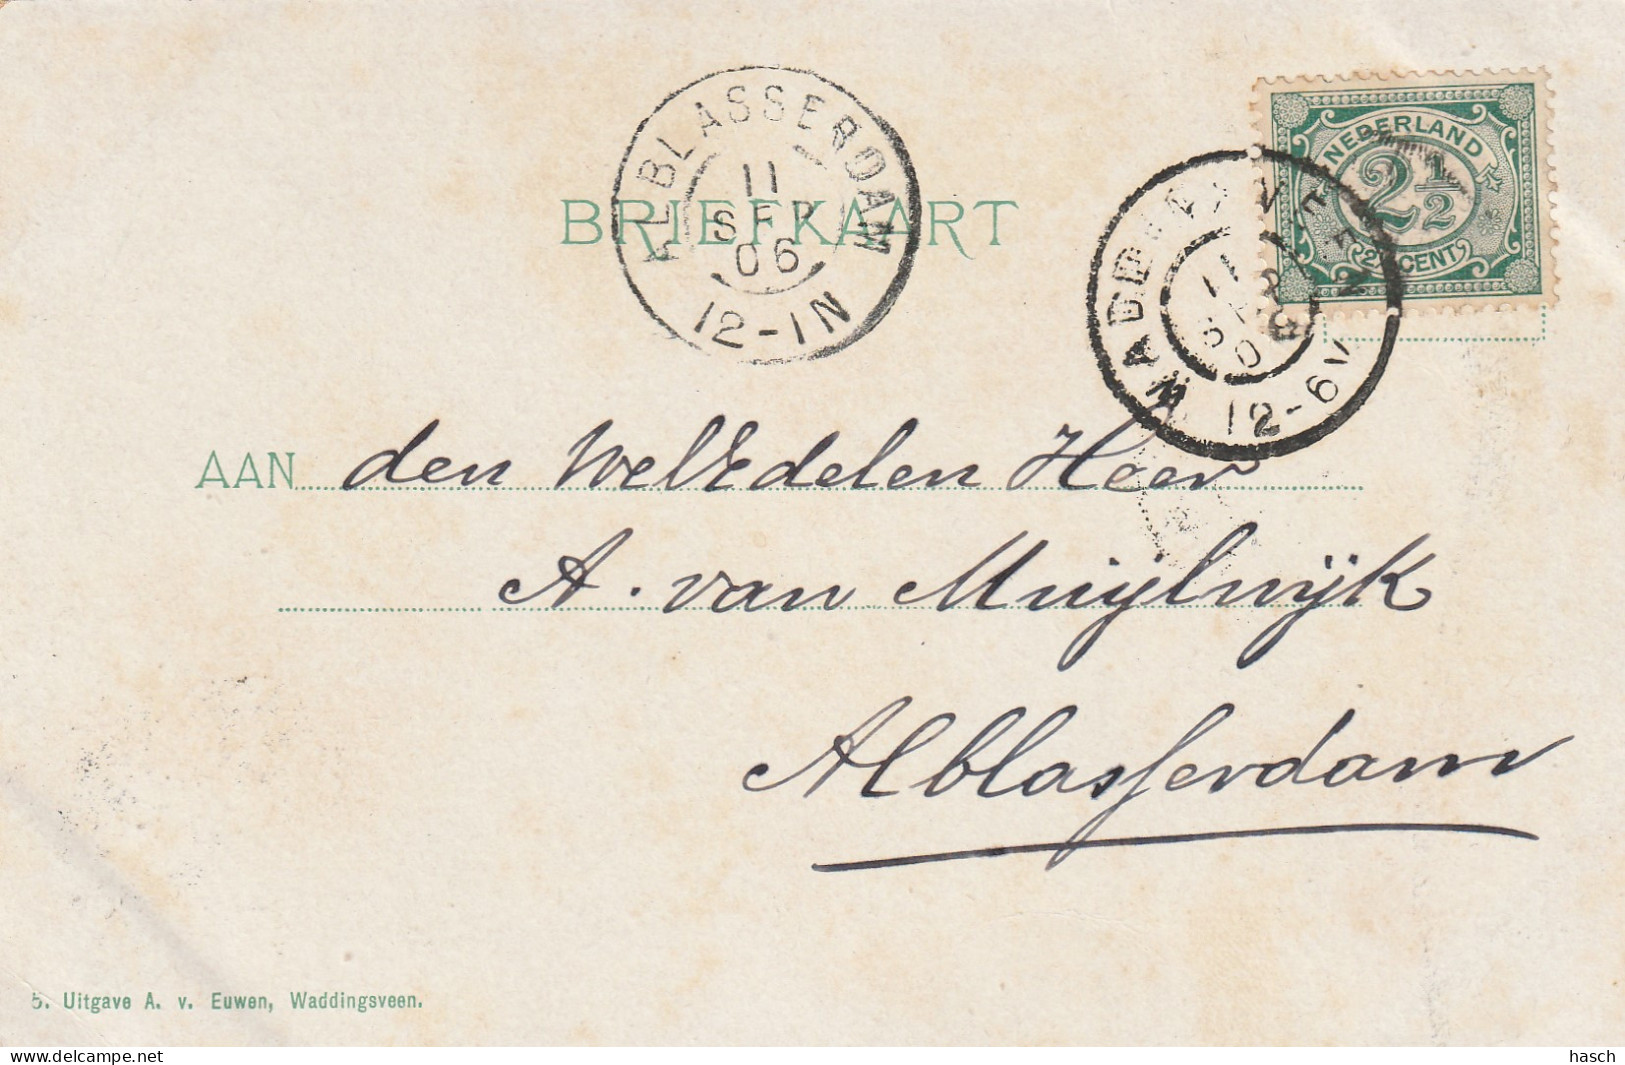 ALBLASSERDAM
11
SEP
06
12-1N
NEDERLAND
2½
2½ CENT
WADDINXVEEN
11
12-6V
BRIEFKAART
AAN den WelEdelen Heer
A. van Muijlwijk
Alblasserdam
5. Uitgave A. v. Euwen, Waddingsveen.
delcampe.net
hasch